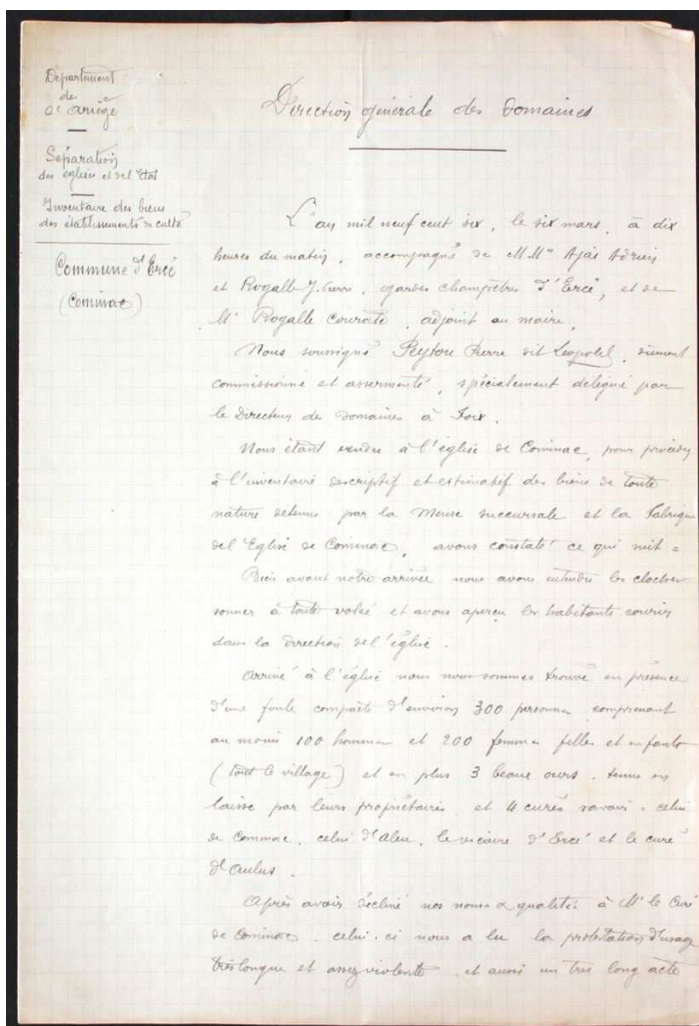 Département
de
l'Ariège
Séparation
des églises et de l'Etat
Inventaire des biens
des établissements de culte
Commune d'Ercé
(Cominac)
Direction générale des Domaines
L'an mil neuf cent six, le six mars, à dix
heures du matin, accompagné de MMrs Ajas Adrien
et Rogalle J. Pierre, gardes champêtres d'Ercé, et de
Mr Rogalle, adjoint au maire,
Nous soussigné Peytou Pierre dit Leopold, dûment
commissionné et assermenté, spécialement délégué par
le Directeur des Domaines à Foix.
Nous étant rendu à l'église de Cominac, pour procéder
à l'inventaire descriptif et estimatif des biens de toute
nature détenus par la Mense succursale et la Fabrique
de l'Eglise de Cominac, avons constaté ce qui suit =
Bien avant notre arrivée nous avons entendu les cloches
sonner à toute volée et avons aperçu les habitants courir
dans la direction de l'église.
Arrivé à l'église nous nous sommes trouvé en présence
d'une foule compacte d'environ 300 personnes comprenant
au moins 100 hommes et 200 femmes filles et enfants
(tout le village) et en plus 3 beaux ours, tenus en
laisse par leurs propriétaires et 4 curés savoir: celui
de Cominac, celui d'Aleu, le vicaire d'Ercé et le curé
d'Aulus.
Après avoir décliné nos noms & qualités à Mr le Curé
de Cominac, celui-ci nous a lu la protestation d'usage
très longue et assez violente et aussi un très long acte